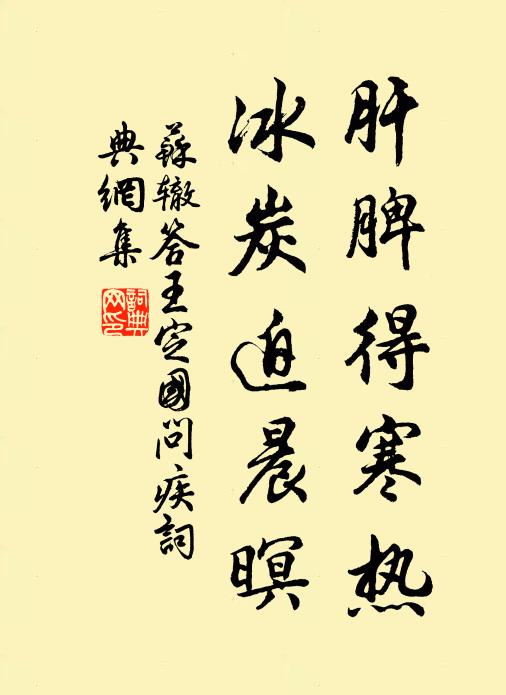 肝脾得寒热
冰炭迫晨暝
苏辙答王定國问疾詞
典網集
詞典
网印